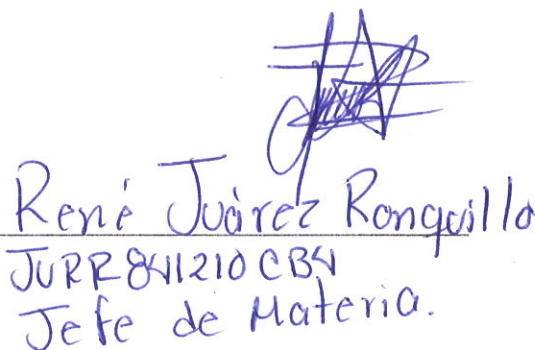 René Juárez Ronquillo
JURR841210CB4
Jefe de Materia.